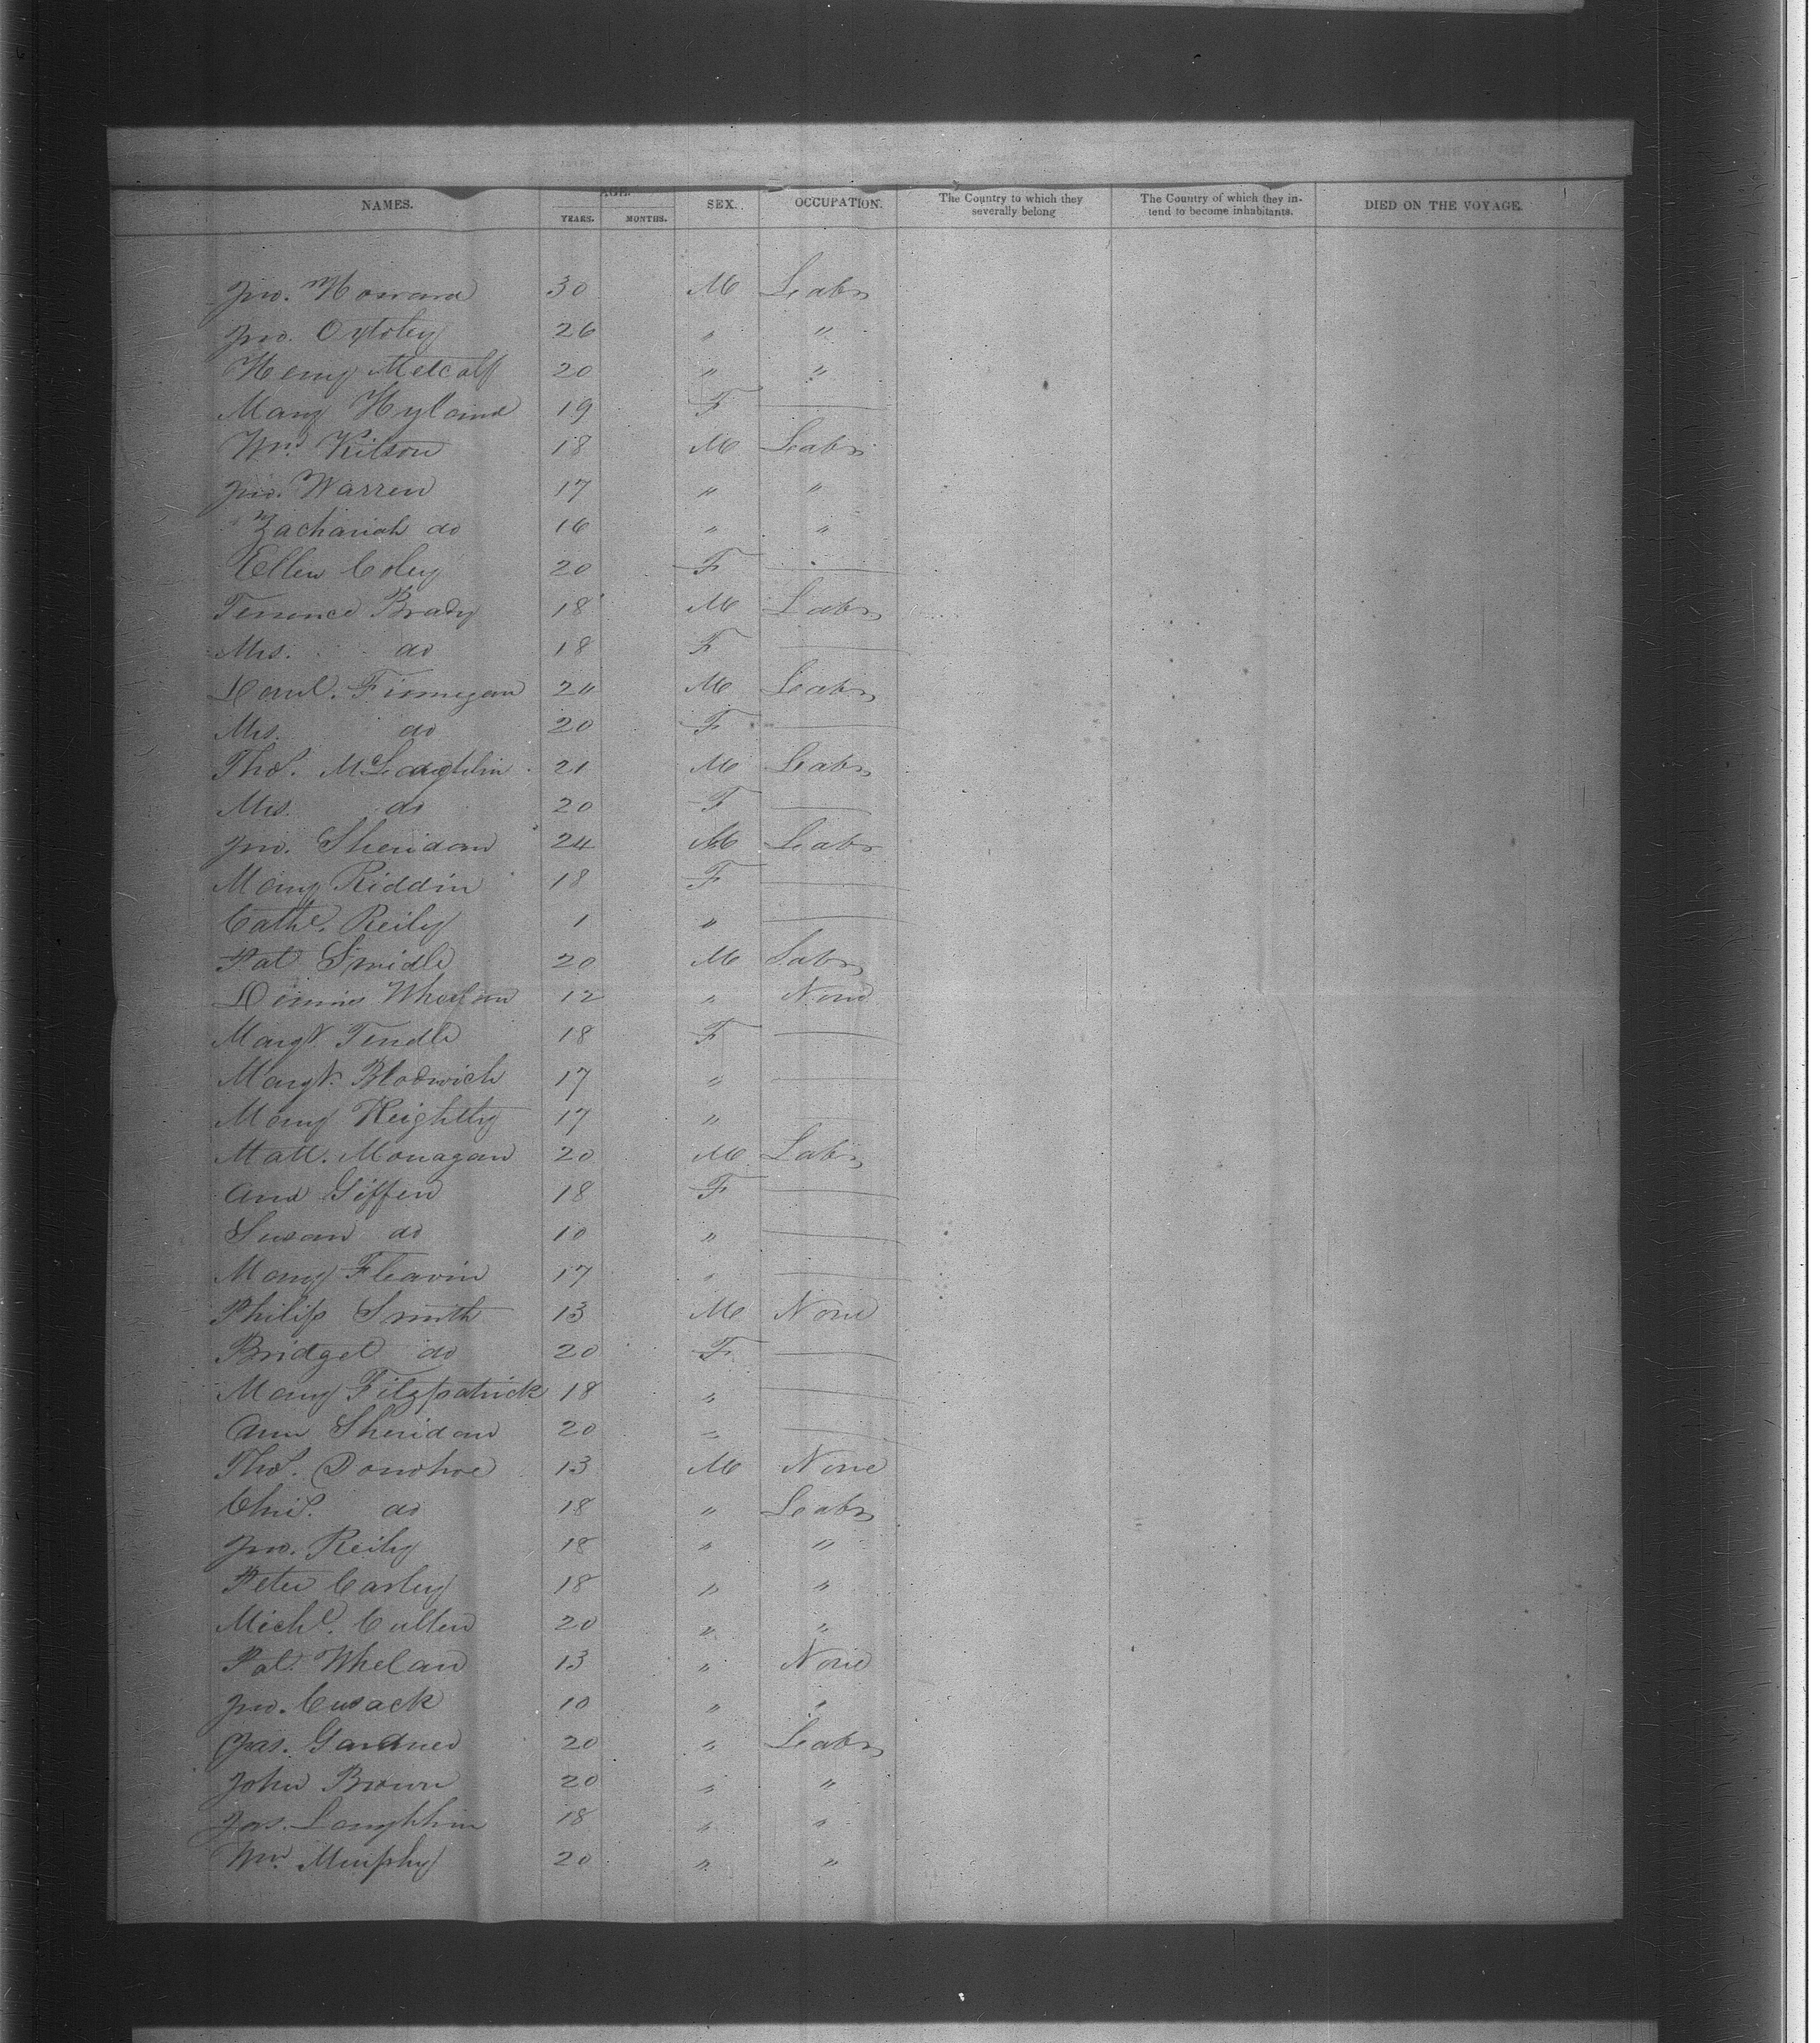 NAMES. AGE. YEARS. MONTHS. SEX. OCCUPATION. The Country to which they severally belong The Country of which they intend to become inhabitants. DIED ON THE VOYAGE.
Jno. Howard 30 M Labr
Jno. 26 " "
Henry Metcalf 20 " "
Mary Hyland 19 F
Wm. Kitson 18 M Labr
Jno. Warren 17 " "
Zachariah do 16 " "
Ellen Coley 20 F
Terrence Brady 18 M Labr
Mrs. do 18 F
Danl. Finnegan 24 M Labr
Mrs. do 20 F
Thos. McLaughlin 21 M Labr
Mrs. do 20 F
Jno. Sheridan 24 M Labr
Mary Riddin 18 F
Cathe. Reily 1 "
Pat 20 M Labr
Dennis Whelan 12 " None
Margt. Tendle 18 F
Margt. Blodwich 17 "
Mary Keightly 17 "
Matt. Monagan 20 M Labr
Ann Giffen 18 F
Susan do 10 "
Mary Fleavin 17 "
Philip Smith 13 M None
Bridget do 20 F
Mary Fitzpatrick 18 "
Ann Sheridan 20 "
Thos. Donohoe 13 M None
Chrs. do 18 " Labr
Jno. Reily 18 " "
Peter Carley 18 " "
Michl. Cullen 20 " "
Pat. Whelan 13 " None
Jno. Cusack 10 " "
Jas. Gardner 20 " Labr
John Brown 20 " "
Jas. Laughlin 18 " "
Wm. Murphy 20 " "